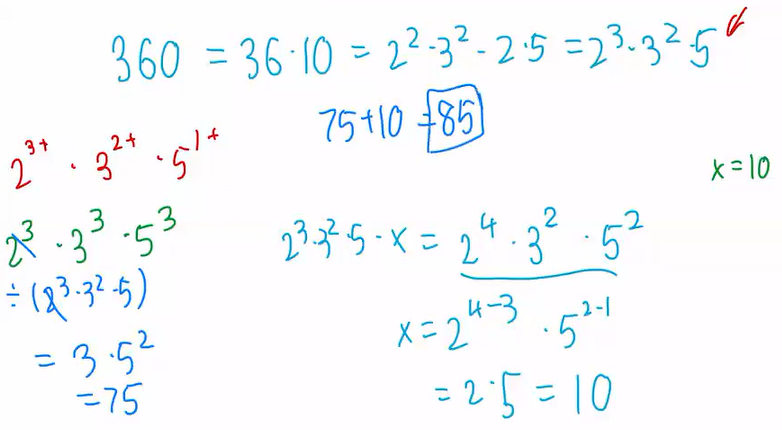 360 = 36·10 = 2²·3²·2·5 = 2³·3²·5
75+10 = 85
2³⁺ · 3²⁺ · 5¹⁺
x=10
2³ · 3³ · 5³
2³·3²·5·x = 2⁴·3²·5²
÷(2³·3²·5)
x=2⁴⁻³ · 5²⁻¹
= 3·5²
= 2·5 = 10
=75